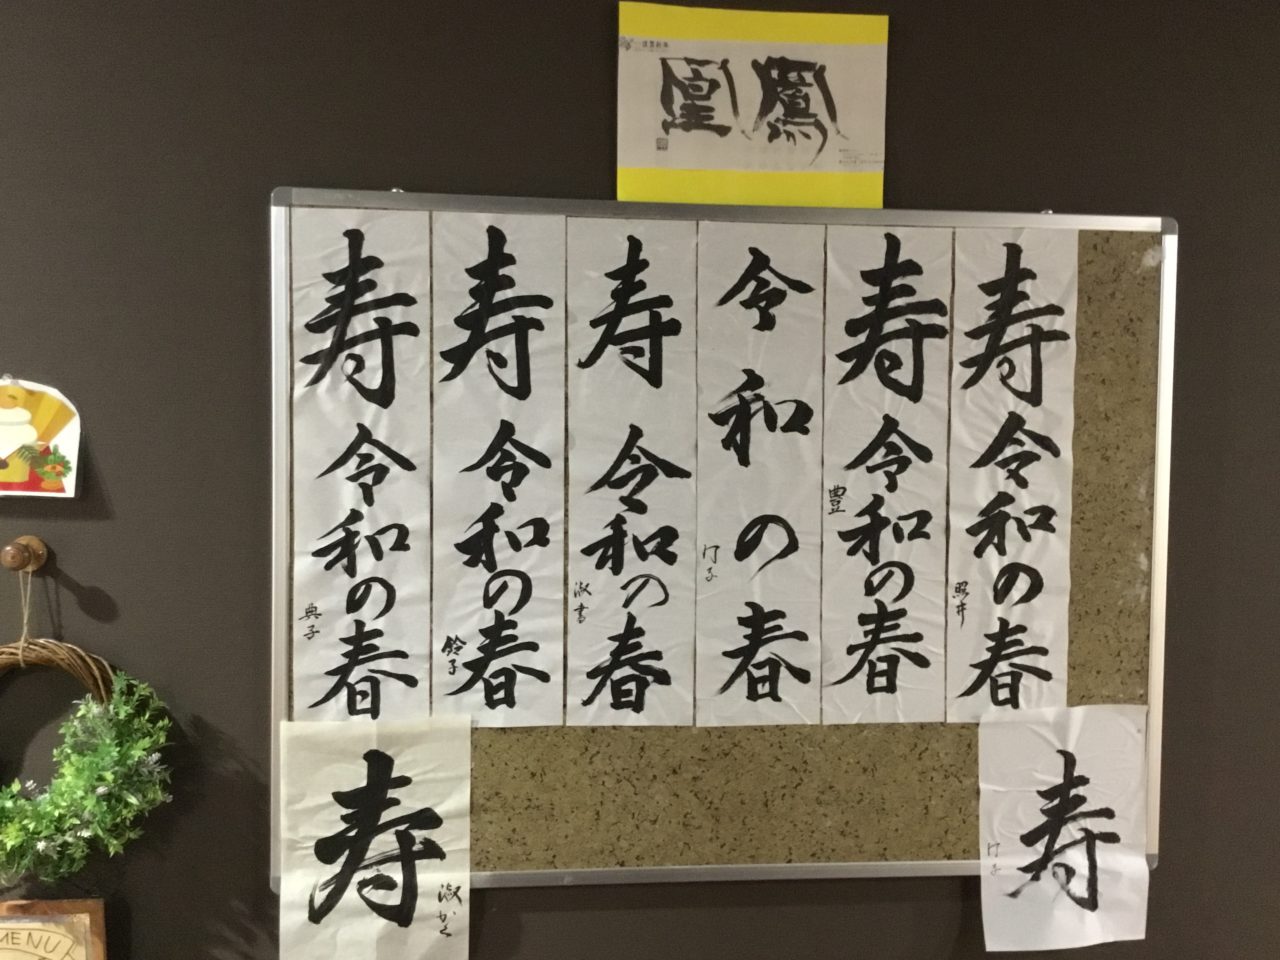 鳳凰
寿 令和の春
照井
寿 令和の春
豊
令和の春
寿 令和の春
淑書
寿 令和の春
鈴子
寿 令和の春
典子
寿
寿
淑かく
MENU